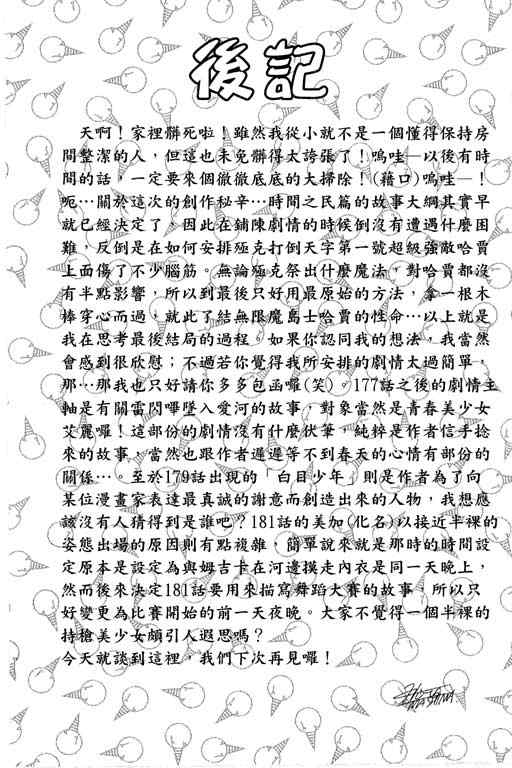 後記
天啊！家裡髒死啦！雖然我從小就不是一個懂得保持房
間整潔的人，但這也未免髒得太誇張了！嗚哇─以後有時
間的話，一定要來個徹徹底底的大掃除！(藉口)嗚哇─！
呃…關於這次的創作秘辛…時間之民篇的故事大綱其實早
就已經決定了，因此在鋪陳劇情的時候倒沒有遭遇什麼困
難，反倒是在如何安排極克打倒天字第一號超級強敵哈賈
上面傷了不少腦筋。無論極克祭出什麼魔法，對哈賈都沒
有半點影響，所以到最後只好用最原始的方法，拿一根木
棒穿心而過，就此了結無限魔島士哈賈的性命…以上就是
我在思考最後結局的過程。如果你認同我的想法，我當然
會感到很欣慰；不過若你覺得我所安排的劇情太過簡單，
那…那我也只好請你多多包涵囉(笑)。177話之後的劇情主
軸是有關雷閃嗶墜入愛河的故事，對象當然是青春美少女
艾麗囉！這部份的劇情沒有什麼伏筆，純粹是作者信手捻
來的故事，當然也跟作者遲遲等不到春天的心情有部份的
關係…。至於179話出現的「白目少年」則是作者為了向
某位漫畫家表達最真誠的謝意而創造出來的人物，我想應
該沒有人猜得到是誰吧？181話的美加(化名)以接近半裸的
姿態出場的原因則有點複雜，簡單說來就是那時的時間設
定原本是設定為與姆吉卡在河邊摸走內衣是同一天晚上，
然而後來決定181話要用來描寫舞蹈大賽的故事，所以只
好變更為比賽開始的前一天夜晚。大家不覺得一個半裸的
持槍美少女頗引人遐思嗎？
今天就談到這裡，我們下次再見囉！